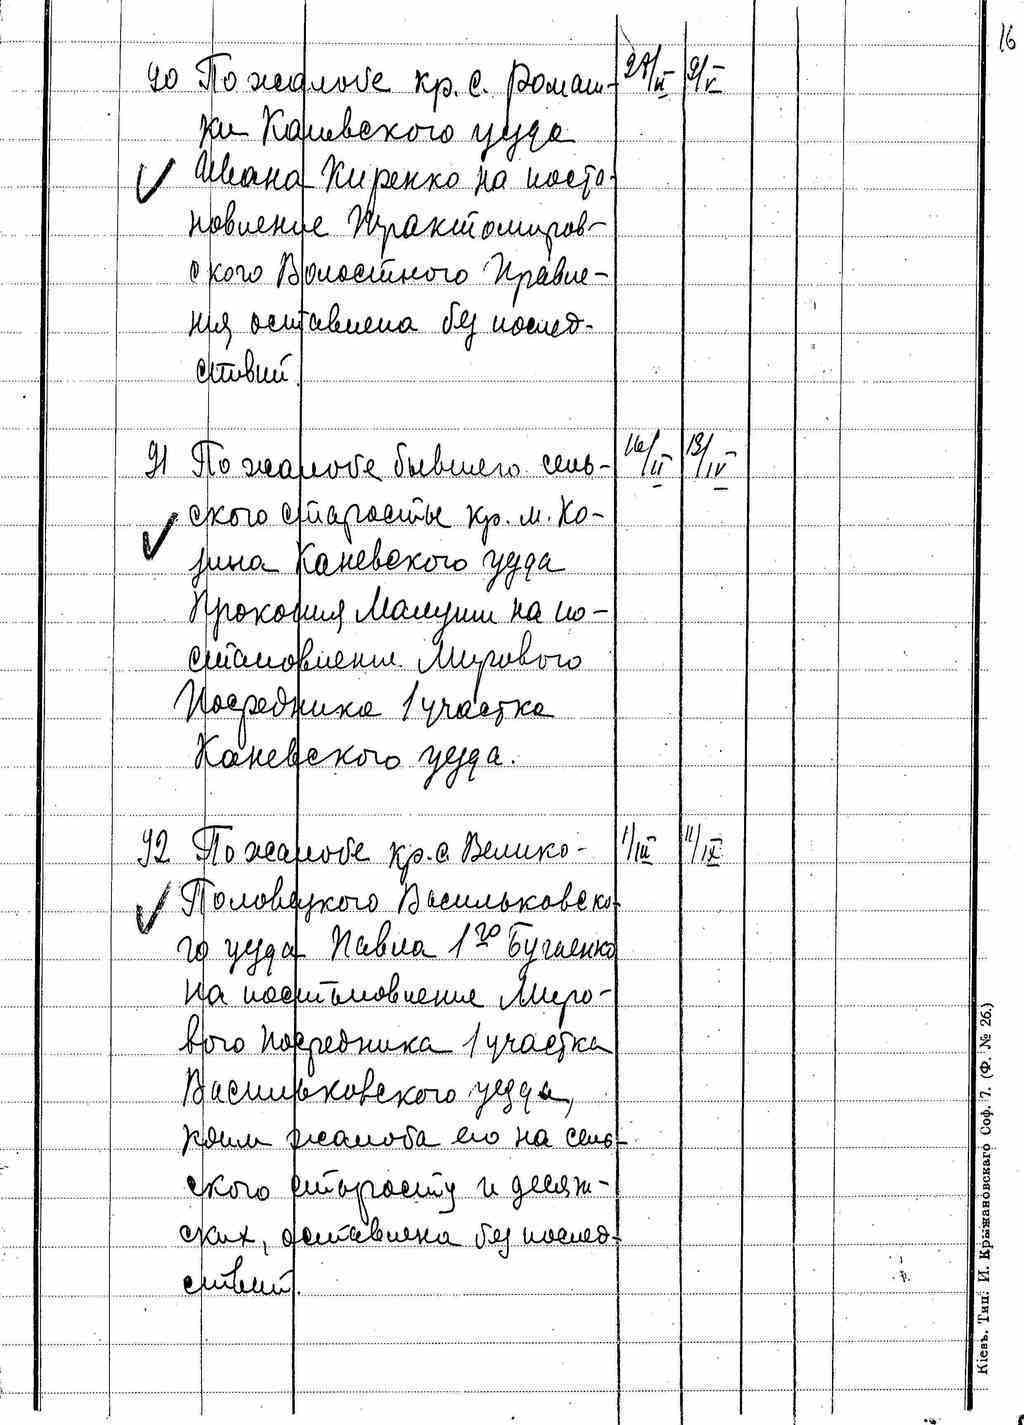 16
90 По жалобе кр. с. Ромаш- 27/II 9/V
ки Каневского уезда
Ивана Киренко на поста-
новление Трактомиров-
ского Волостного Правле-
ния оставлена без послед-
ствий.
91 По жалобе бывшего сель- 16/II 13/IV
ского старосты кр. м. Ко-
зина Каневского уезда
Прокофия на по-
становление Мирового
Посредника 1 участка
Каневского уезда.
92 По жалобе кр. с Велико- 1/III 11/IX
Половецкого Васильковско-
го уезда Павла 1го Бугаенко
на постановление Миро-
вого Посредника 1 участка
Васильковского уезда,
коим жалоба его на сель-
ского старосту и десят-
ских, оставлена без послед-
ствий.
Кіевъ. Тип. И. Крыжановскаго Соф. 7. (Ф. № 26.)